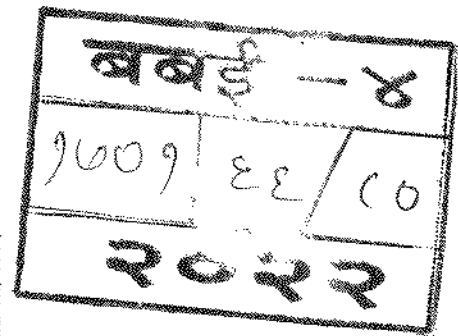 बबई - ४
१७०१ ६६/८०
२०२२